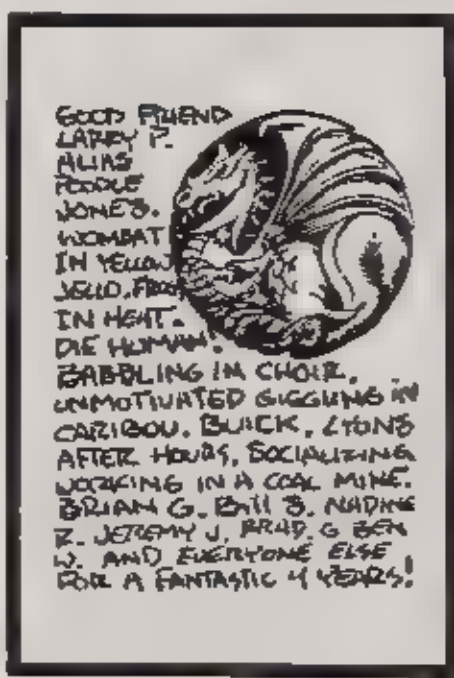 GOOD FRIEND
LARRY P.
ALIAS
POODLE
JONES.
WOMBAT
IN YELLOW
JELLO, FROG
IN HEAT.
DIE HUMAN!
BABBLING IN CHOIR,
UNMOTIVATED GIGGLING IN
CARIBOU. BUICK, LYONS
AFTER HOURS, SOCIALIZING
WORKING IN A COAL MINE.
BRIAN G. BILL B. NADINE
R. JEREMY J. BRAD. G BEN
W. AND EVERYONE ELSE
FOR A FANTASTIC 4 YEARS!